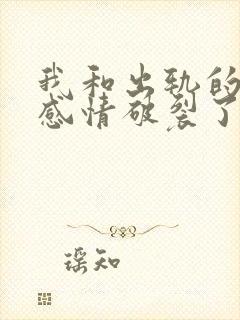 我和出轨的
感情破裂了
瑶知